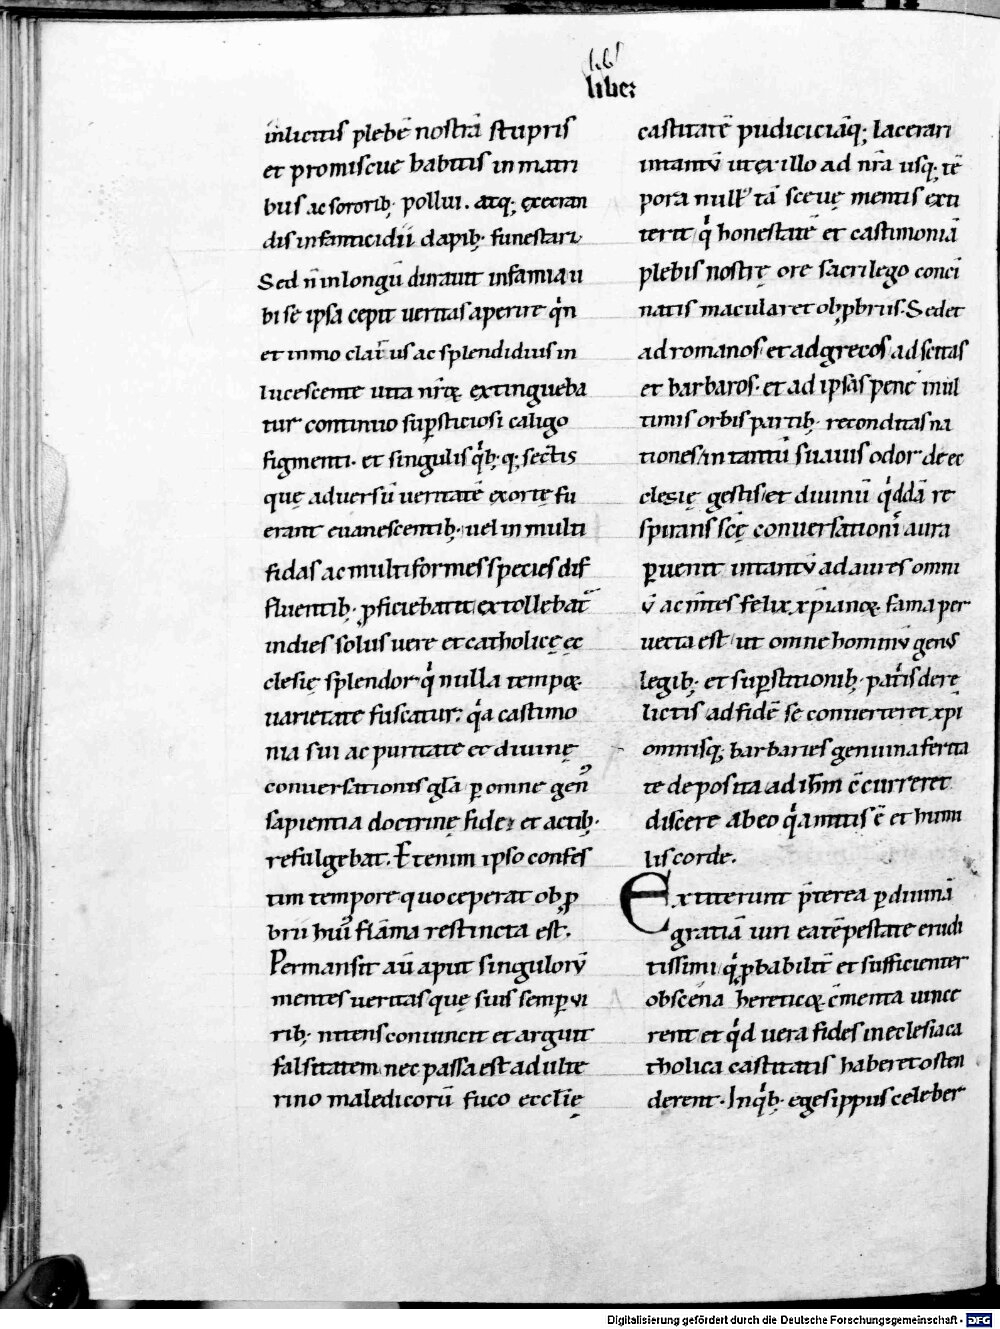 lib
liber
inlicitis plebē nostrā stupris
et promiscue habitis in matri
bus ac sororib; pollui. atq; execran
dis infanticidii dapib; funestari
Sed n̄ in longū durauit infamia u
bi se ipsa cepit ueritas aperire qͥn
et inmo clari᷒us ac splendidius in
lucescente uita nr̄oꝝ extingueba
tur continuo suꝑsticiosi caligo
figmenti. et singulis qͥb; q; sectis
quę aduersū ueritatē exortę fu
erant euanescentib; uel in multi
fidas ac multiformes species dif
fluentib; ꝓficiebat et extollebat̄
indies solus uere et catholicę ęc
clesię splendor qͥ nulla tempoꝝ
uarietate fuscatur; qͥa castimo
nia sui ac puritate et diuinę
conuersationis gl̄a ꝑ omne gen᷒
sapientia doctrinę fidei et actib;
refulgebat. Etenim ipso confes
tim tempore quo ceperat obꝓ
brii hui᷒ flāma restincta est.
Permansit aū aput singulorū
mentes ueritas quę suis semꝑ ui
rib; nitens conuincit et arguit
falsitatem nec passa est adulte
rino maledicorū fuco eccl̄ię
castitatē pudiciciāq; lacerari
intantū ut ex illo ad nr̄a usq; tē
pora null᷒ tā sceuę mentis exti
terit qͥ honestatē et castimoniā
plebis nostrę ore sacrilego conci
natis macularet obꝓbriis. Sed et
ad romanos et ad grecos ad scitas
et barbaros. et ad ipsas pene in ul
timis orbis partib; reconditas na
tiones in tantū suauis odor de ec
clesię gestis et diuinū qͥddā re
spirans scę̄ conuersationis aura
ꝑuenit intantū ad aures omni
ū ac m̄tes felix xp̄ianoꝝ fama per
uecta est ut omne hominū genus
legib; et suꝑstitionib; patͥis dere
lictis ad fidē se conuerteret xp̄i
omnisq; barbaries genuina ferita
te deposita ad ih̄m c̄curreret
discere ab eo qͥa mitis ē et humi
lis corde.
Extiterunt p̄terea ꝑ diuinā
gratiā uiri ea tēpestate erudi
tissimi qͥ ꝓbabilit̄ et sufficienter
obscena hereticoꝝ c̄menta uince
rent et qͥd uera fides in eclesia ca
tholica castitatis haberet osten
derent. In qͥb; egesippus celeber